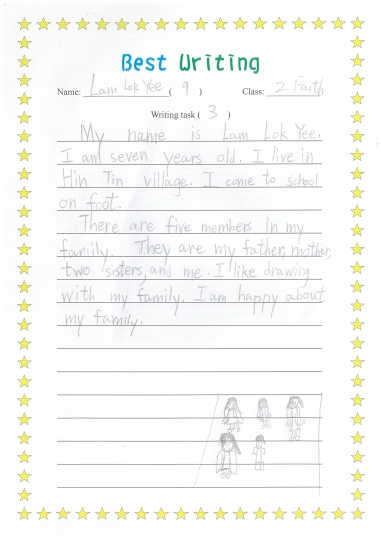 Best Writing
Name: Lam Lok Yee ( 9 ) Class: 2 Faith
Writing task ( 3 )
My name is Lam Lok Yee.
I am seven years old. I live in
Hin Tin village. I come to school
on foot.
There are five members in my
family. They are my father, mother,
two sisters, and me. I like drawing
with my family. I am happy about
my family.